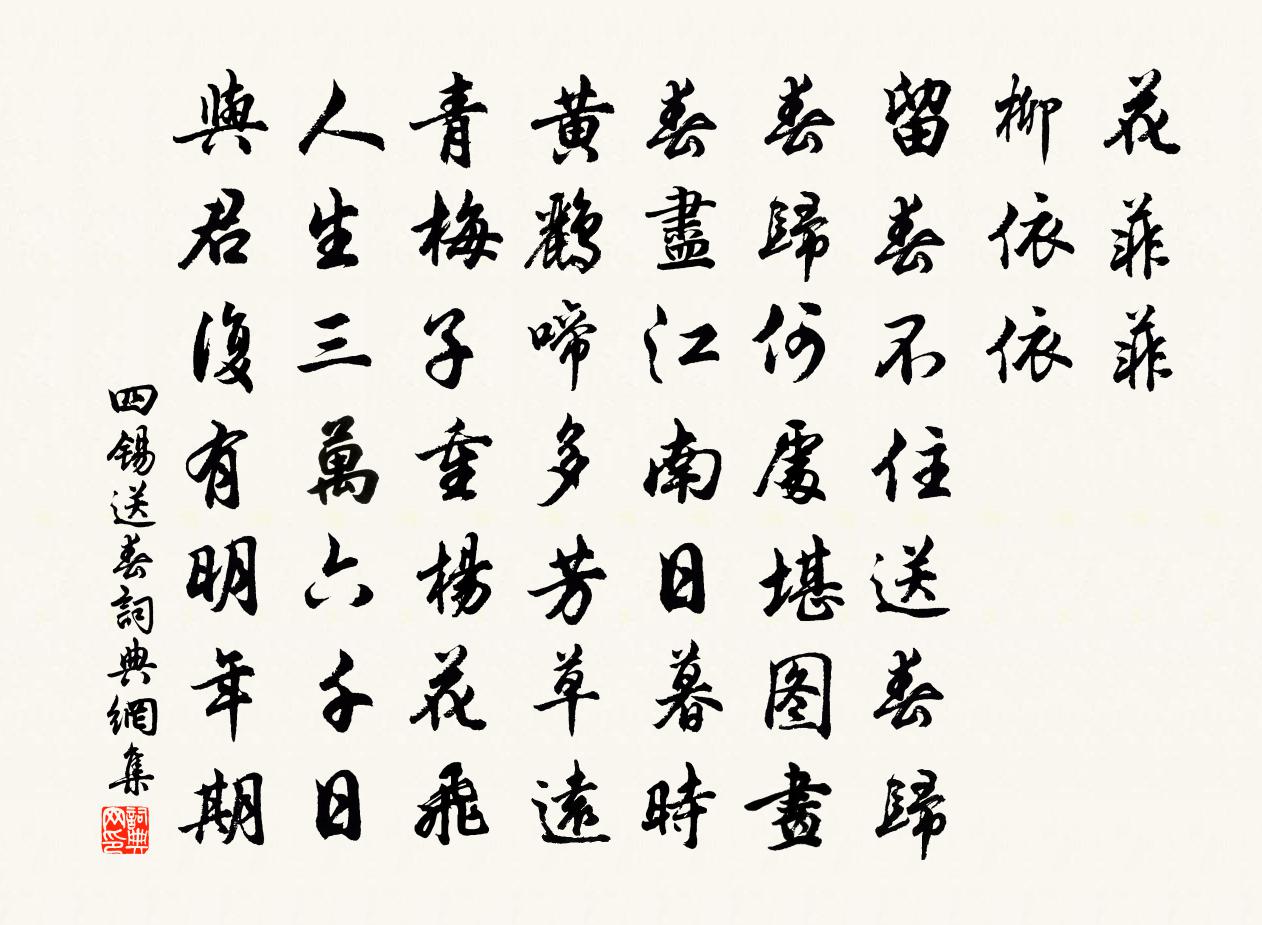 花菲菲
柳依依
留春不住送春歸
春歸何處堪图畫
春盡江南日暮時
黄鸝啼多芳草遠
青梅子重楊花飛
人生三萬六千日
與君復有明年期
四錫送春詞典網集
詞典网印